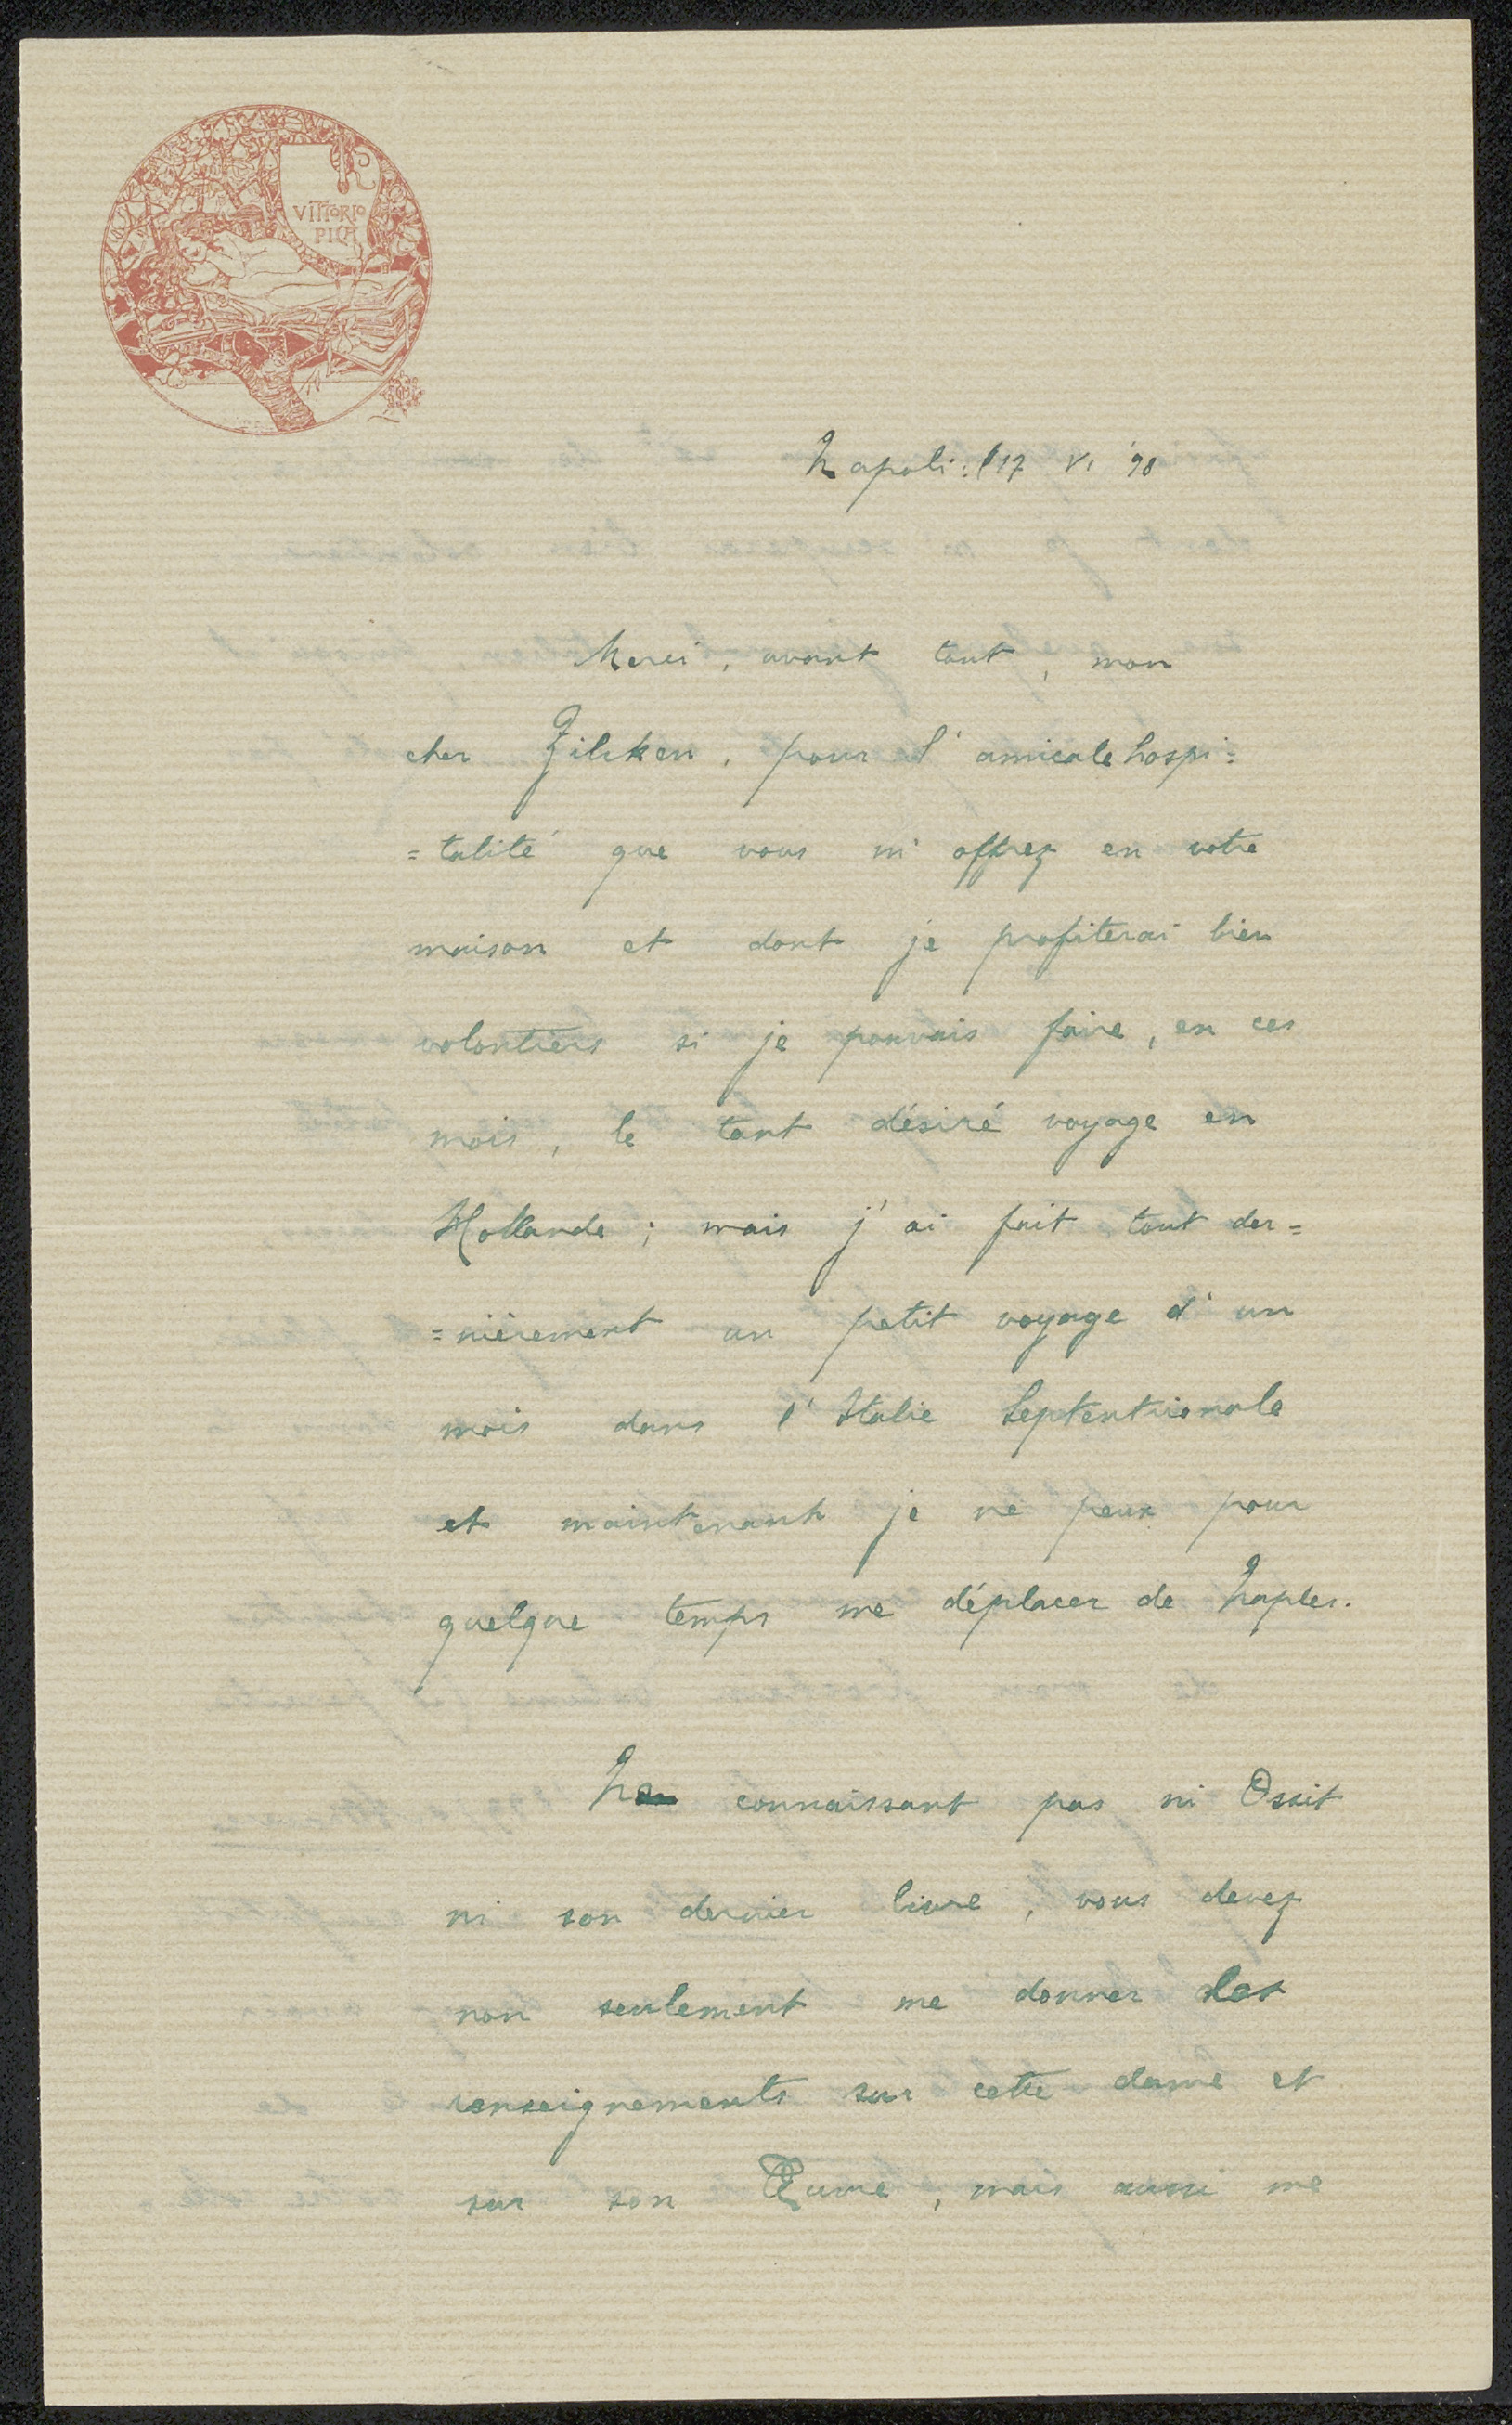 VITTORIO
PICA
Napoli: 17 VI '98
Merci, avant tout, mon
cher Zilcken, pour l'amicale hospi=
=talité que vous m'offrez en votre
maison et dont je profiterai bien
volontiers si je pouvais faire, en ces
mois, le tant désiré voyage en
Hollande; mais j'ai fait tout der=
=nièrement un petit voyage d'un
mois dans l'Italie Septentrionale
et maintenant je ne peux pour
quelque temps me déplacer de Naples.
Ne connaissant pas ni Ossit
ni son dernier livre, vous devez
non seulement me donner des
renseignements sur cette dame et
sur son Œuvre, mais aussi me